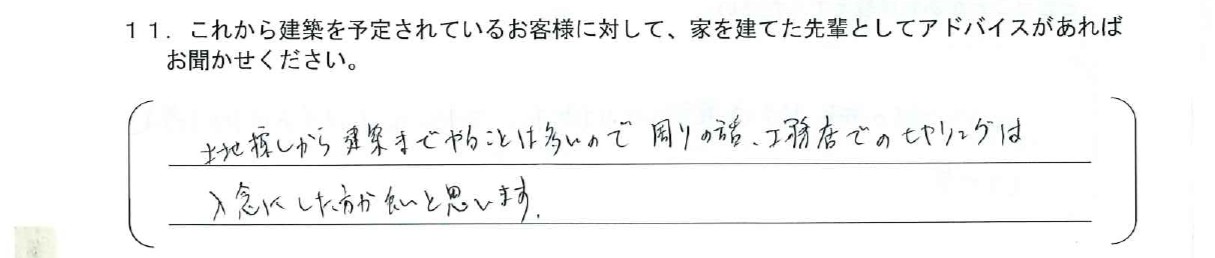 １１．これから建築を予定されているお客様に対して、家を建てた先輩としてアドバイスがあれば
お聞かせください。
土地探しから建築までやることは多いので周りの話、工務店でのヒヤリングは
入念にした方が良いと思います。